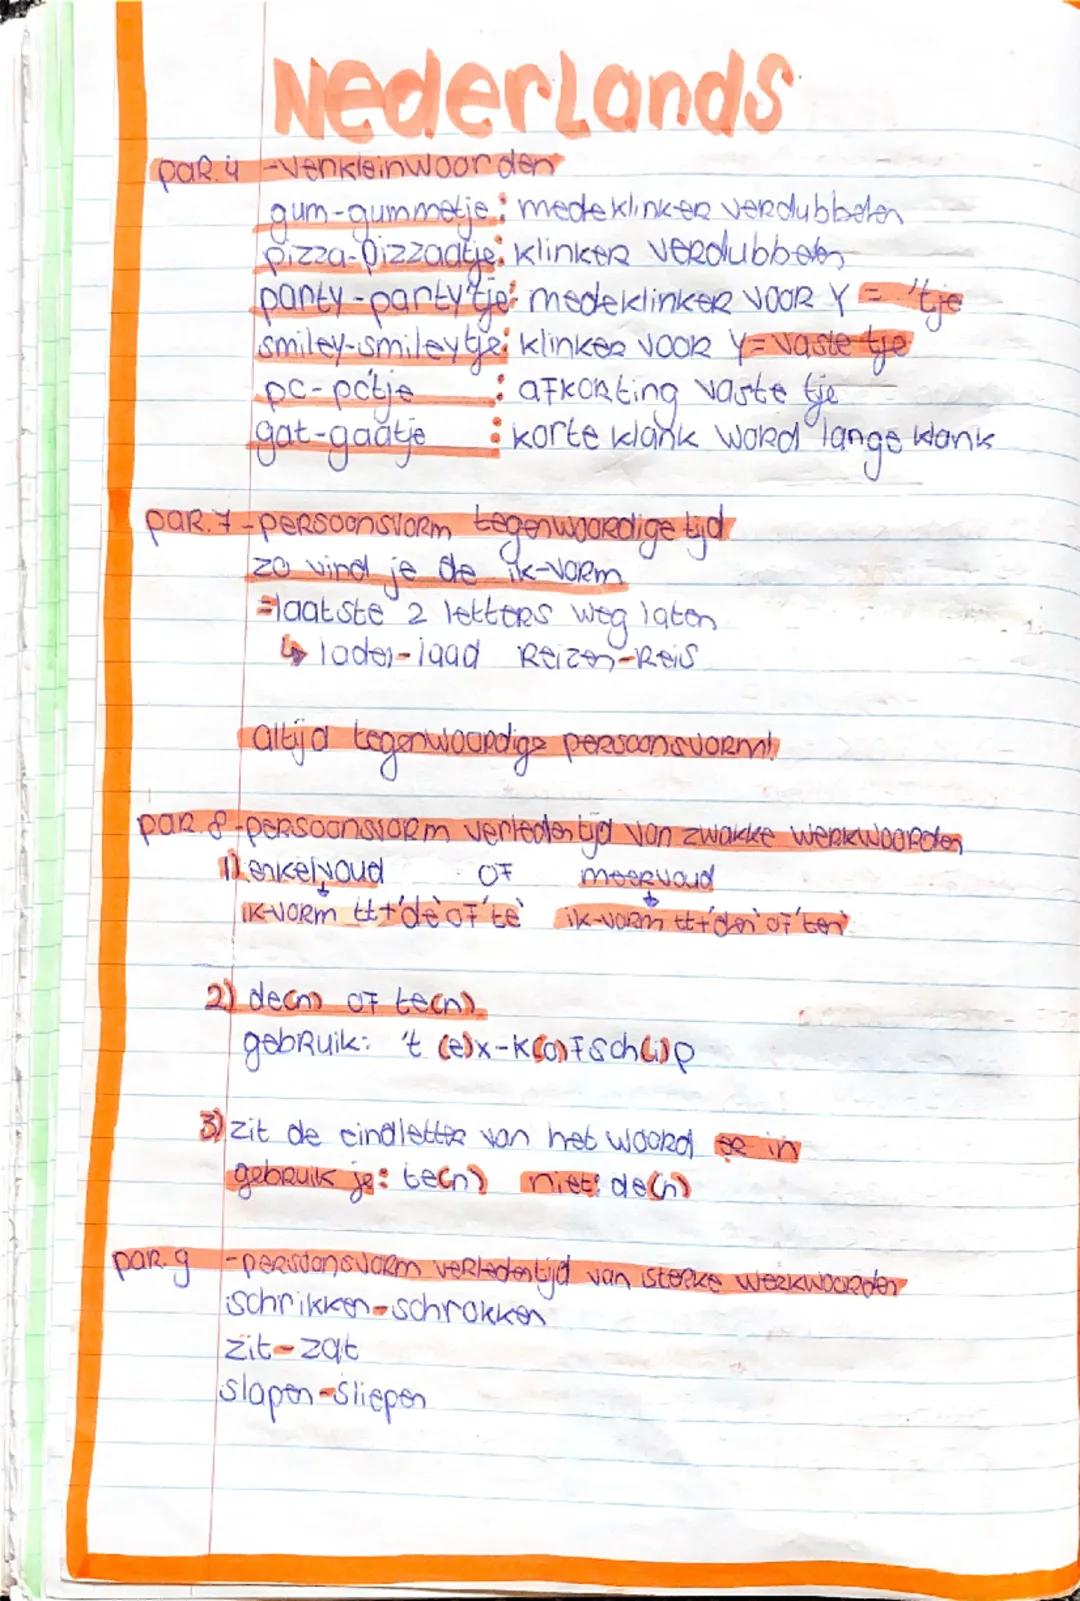 Nederlands
par. 4 -verkleinwoorden
gum-gummetje: medeklinker verdubbelen
pizza-pizzaatje: klinker verdubbelen
party-party'tje: medeklinker voor Y = 'tje
smiley-smileytje: klinker voor Y = vaste tje
pc-pc'tje : afkorting vaste tje
gat-gaatje : korte klank word lange klank
par. 7 -persoonsvorm tegenwoordige tijd
zo vind je de ik-vorm
=laatste 2 letters weg laten
↳ laden-laad Reizen-Reis
altijd tegenwoordige persoonsvorm!
par. 8 -persoonsvorm verleden tijd van zwakke werkwoorden
1) enkelvoud OF meervoud
ik-vorm tt+'de' of 'te' ik-vorm tt+'den' of 'ten'
2) de(n) of te(n)
gebruik: 't (e)x-k(o)fsch(i)p
3) zit de eindletter van het woord er in
gebruik je: te(n) niet: de(n)
par. 9 -persoonsvorm verleden tijd van sterke werkwoorden
schrikken-schrokken
zit-zat
slapen-sliepen